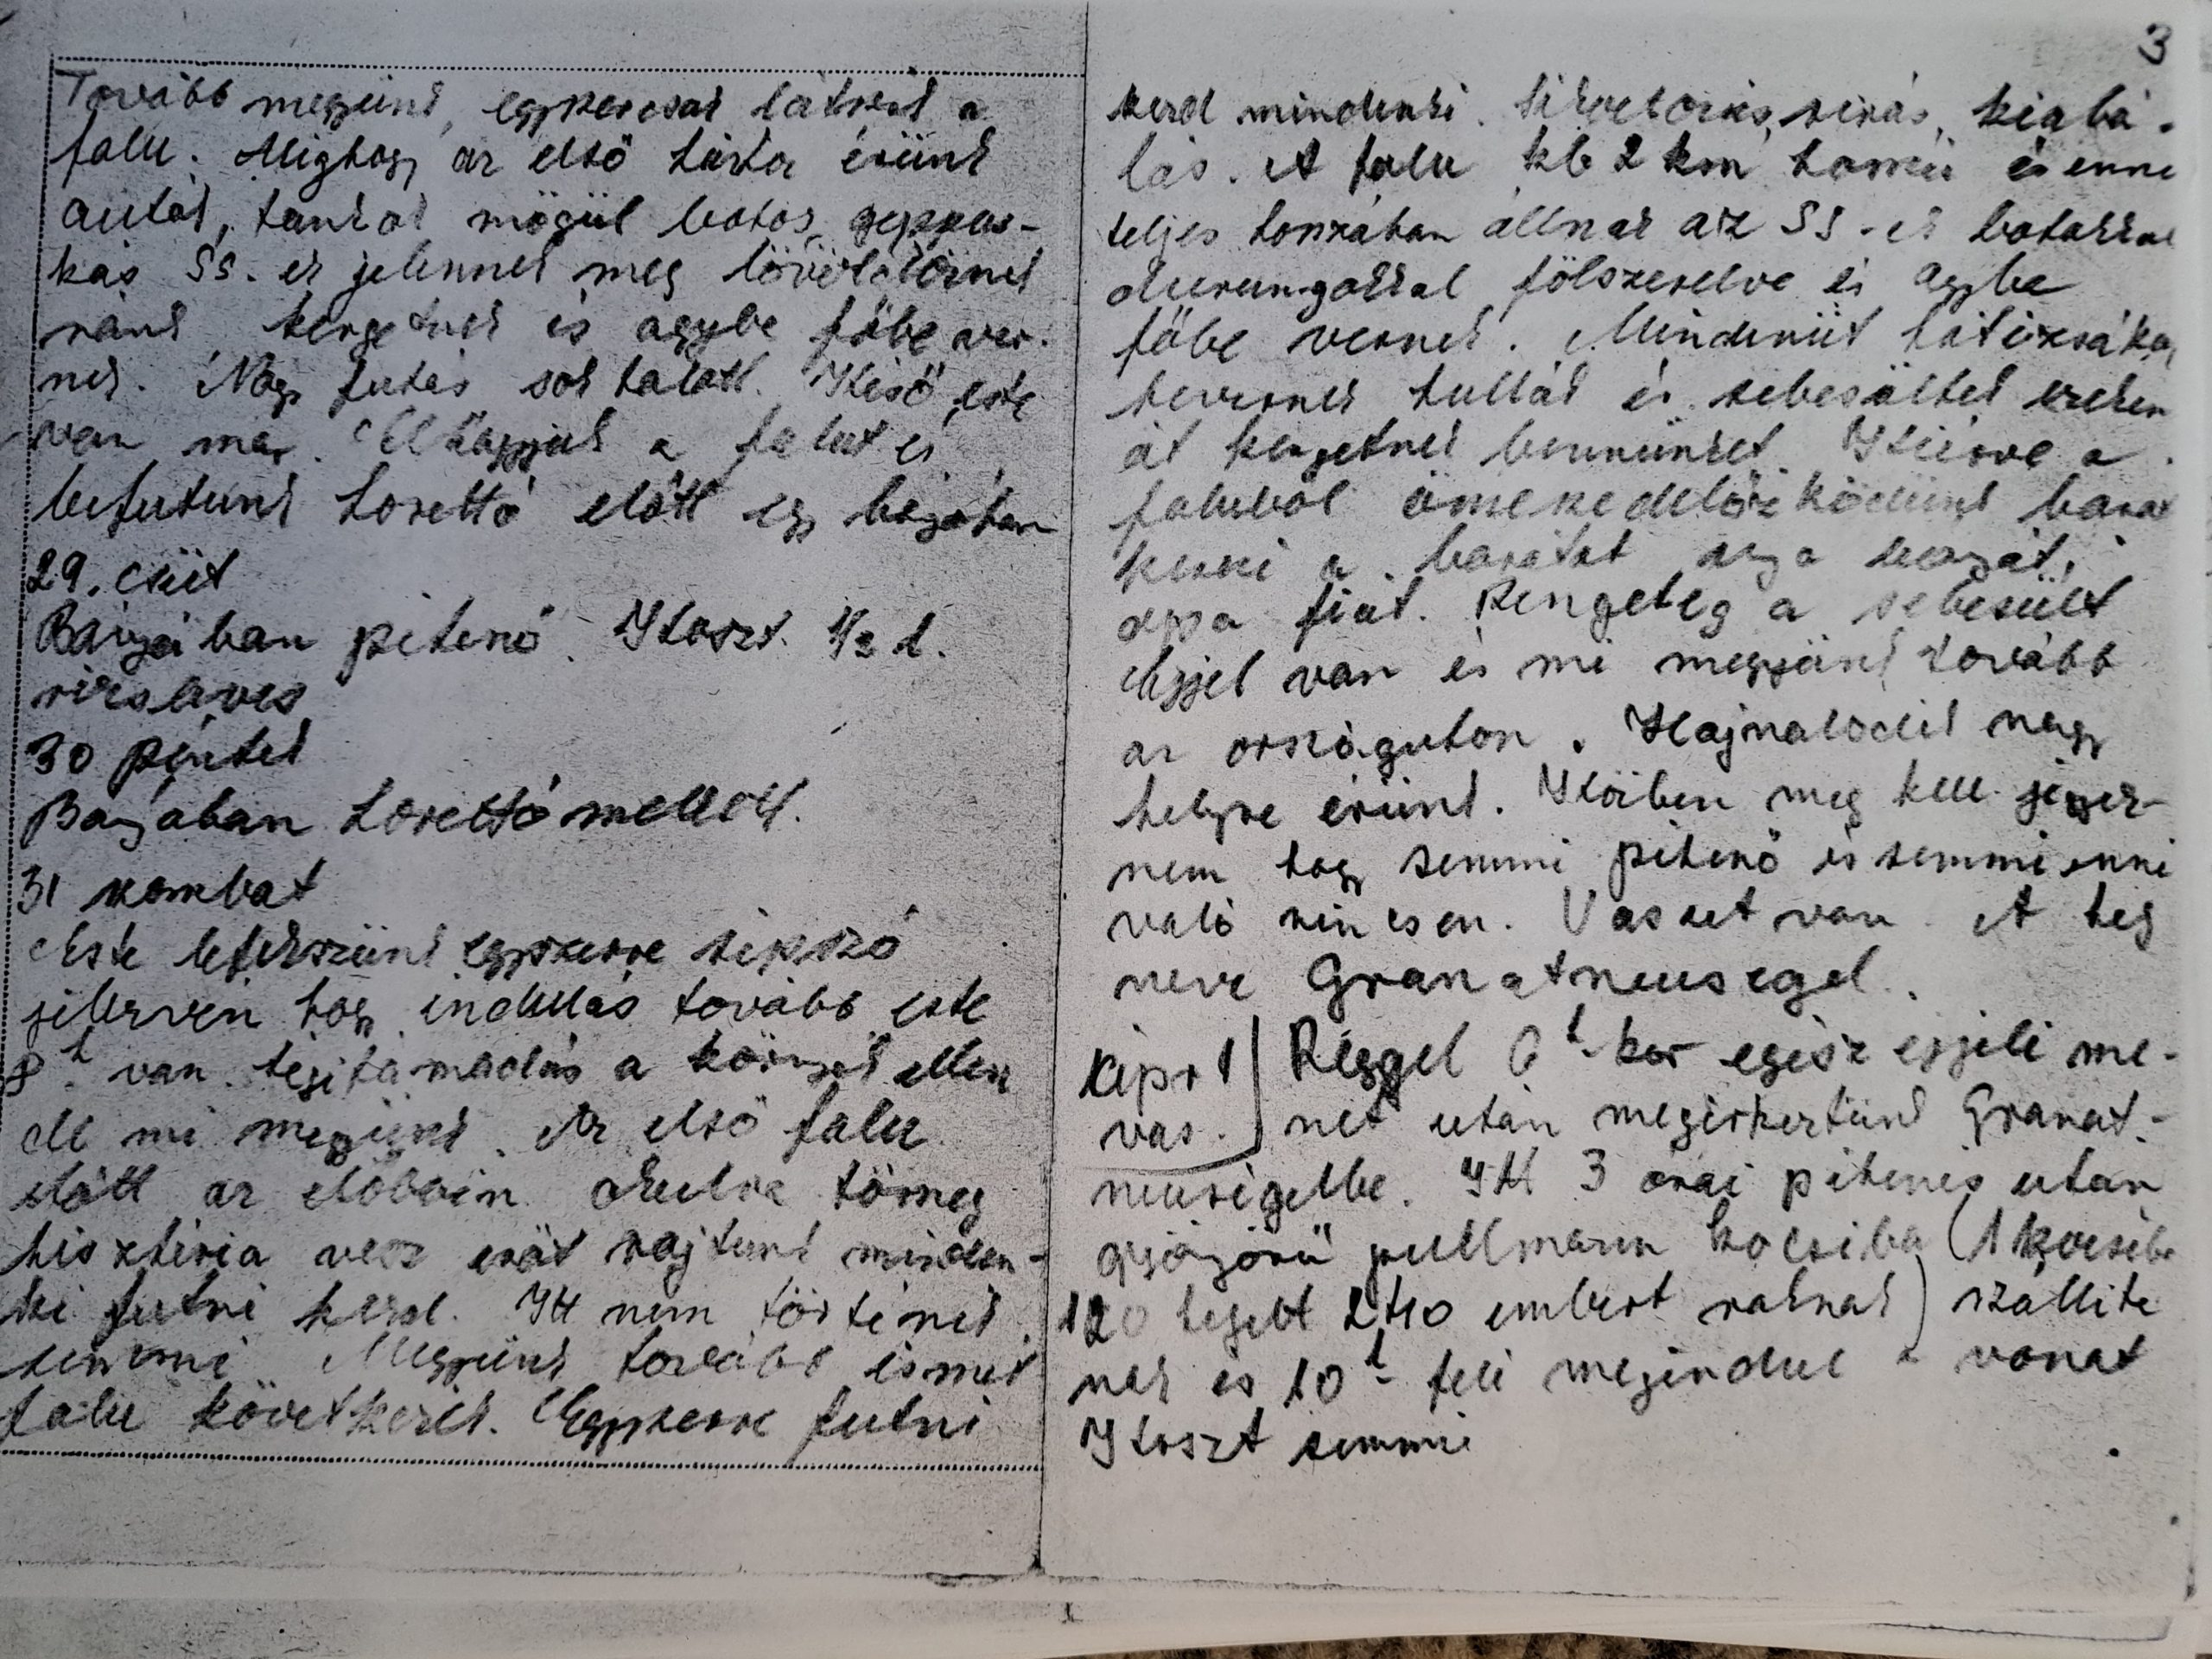 Tovább megyünk, egyszercsak látszik a
falu. Mighogy az első házhoz érünk
autók, tankok mögül botos, geppus-
kás SS-ek jelennek meg lövöldöznek
ránk kergetnek és agyba főbe ver-
nek. Nagy futás sok halott. Késő este
van már. Elhagyjuk a falut és
befutunk Lorettó előtt egy bányában
29. csüt
Bányában pihenő. Koszt 1/2 l.
rizsleves
30 péntek
Bányában Lorettó mellett.
31 szombat
Este lefekszünk egyszerre sípszó
jelezvén hogy indulás tovább este
8h van. Légitámadás a környék ellen
de mi megyünk. Az első falu
előtt az előbbin okulva tömeg
hisztéria vesz erőt rajtunk minden-
ki futni kezd. Itt nem történik
semmi. Megyünk tovább ismét
falu következik. Egyszerre futni
3
kezd mindenki. sírás, kiabá-
lás. A falu kb 2 km hosszú és enne
teljes hosszában állnak az SS-ek botokkal
durungokkal fölszerelve és agyba
főbe vernek. Mindenütt hátizsákok
hevernek hullák és sebesültek ezeken
át kergetnek bennünket. Kiérve a
faluból barát
keresi a barátot anya
apa fiát. Rengeteg a sebesült
Éjjel van és mi megyünk tovább
az országuton. Hajnalodik nagy
helyre érünk. Közben meg kell jegyez-
nem hogy semmi pihenő és semmi enni
való nincsen. Vasket van. A hely
neve Granatneusegel.
ápr 1
vas.
Reggel 6h-kor egész éjjeli me-
net után megérkeztünk Granat-
neusigelbe. Itt 3 órai pihenés után
gyönyörű pullmann kocsiba (1 kocsiba
120 helyett 240 embert raknak) szállíta
nak és 10h felé megindul a vonat
Koszt semmi